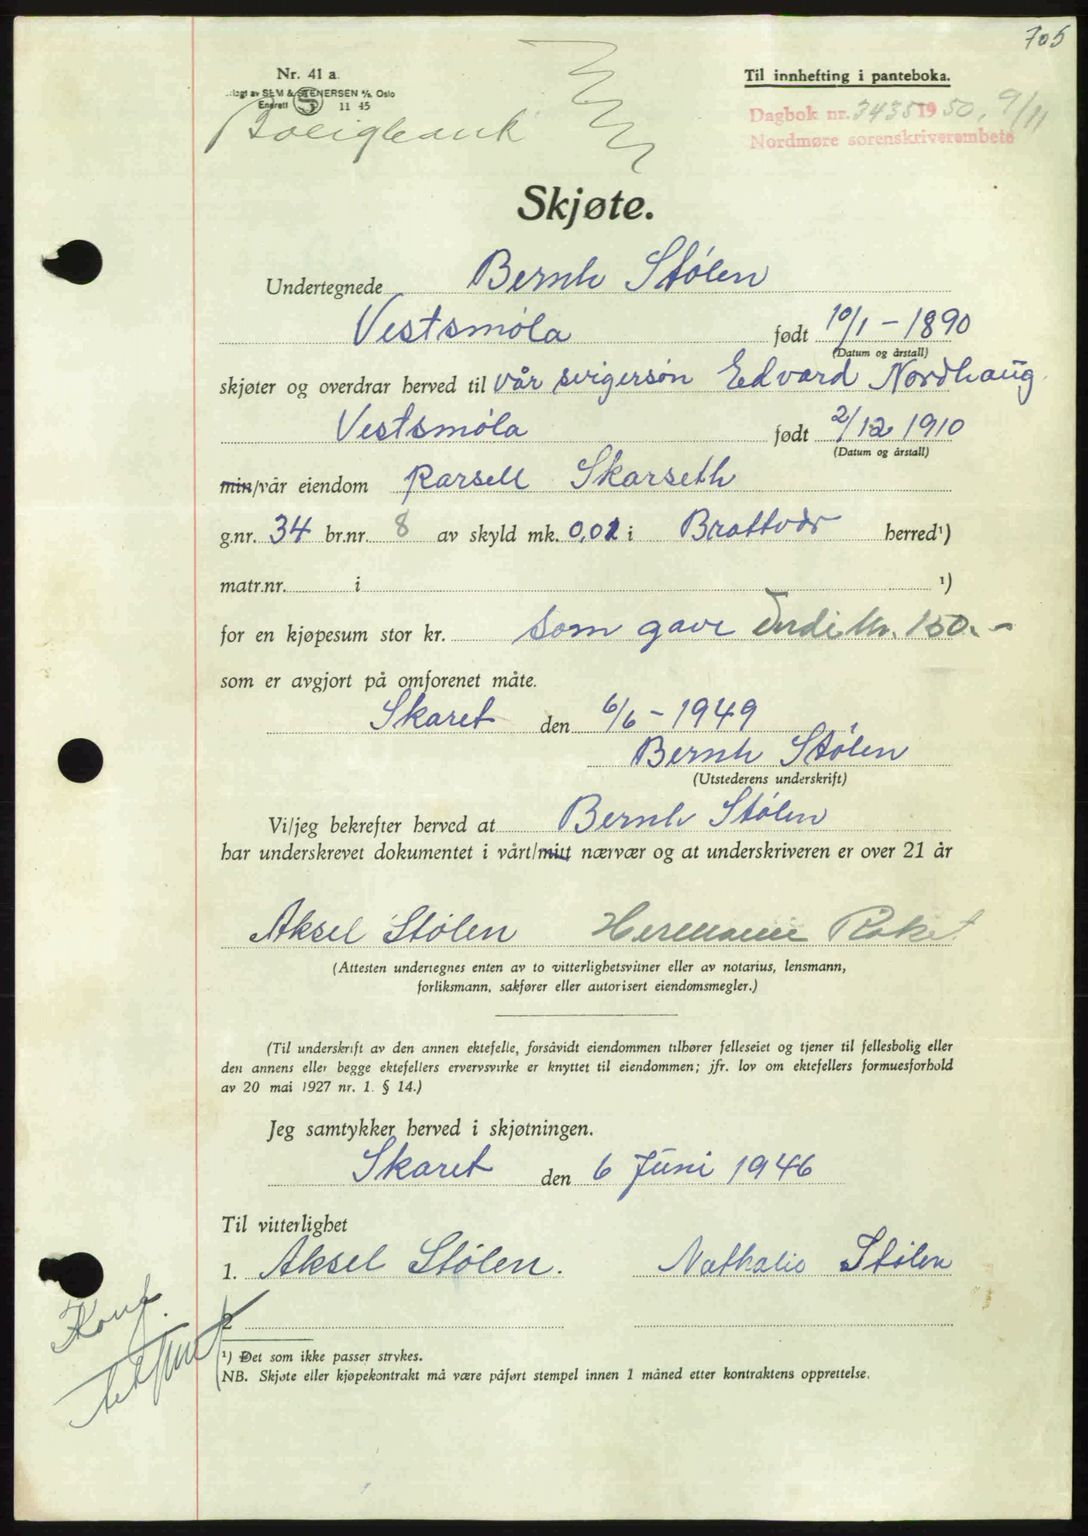 705
Nr. 41 a.
Til innhefting i panteboka.
SEM & STENERSEN A/S, Oslo
Enerett S 11 45
Dagbok nr. 3435 1950, 9/11
Boligbank
Nordmøre sorenskriverembete
Skjøte.
Undertegnede Bernh Stølen
Vestsmøla født 10/1 - 1890
(Datum og årstall)
skjøter og overdrar herved til vår svigersøn Edvard Nordhaug
Vestsmøla født 2/12 1910
(Datum og årstall)
min/vår eiendom parsell Skarseth
g.nr. 34 br.nr. 8 av skyld mk. 0,01 i Brattvær herred¹)
matr.nr. i ¹)
for en kjøpesum stor kr. som gave Verdi kr. 150.-
som er avgjort på omforenet måte.
Skaret den 6/6 - 1949
Bernh Stølen
(Utstederens underskrift)
Vi/jeg bekrefter herved at Bernh Stølen
har underskrevet dokumentet i vårt/mitt nærvær og at underskriveren er over 21 år
Aksel Stølen Hermann
(Attesten undertegnes enten av to vitterlighetsvitner eller av notarius, lensmann,
forliksmann, sakfører eller autorisert eiendomsmegler.)
(Til underskrift av den annen ektefelle, forsåvidt eiendommen tilhører felleseiet og tjener til fellesbolig eller
den annens eller begge ektefellers ervervsvirke er knyttet til eiendommen; jfr. lov om ektefellers formuesforhold
av 20 mai 1927 nr. 1. § 14.)
Jeg samtykker herved i skjøtningen.
Skaret den 6 Juni 1946
Til vitterlighet
1. Aksel Stølen. Nathalie Stølen
2
Konf.
¹) Det som ikke passer strykes.
NB. Skjøte eller kjøpekontrakt må være påført stempel innen 1 måned etter kontraktens opprettelse.